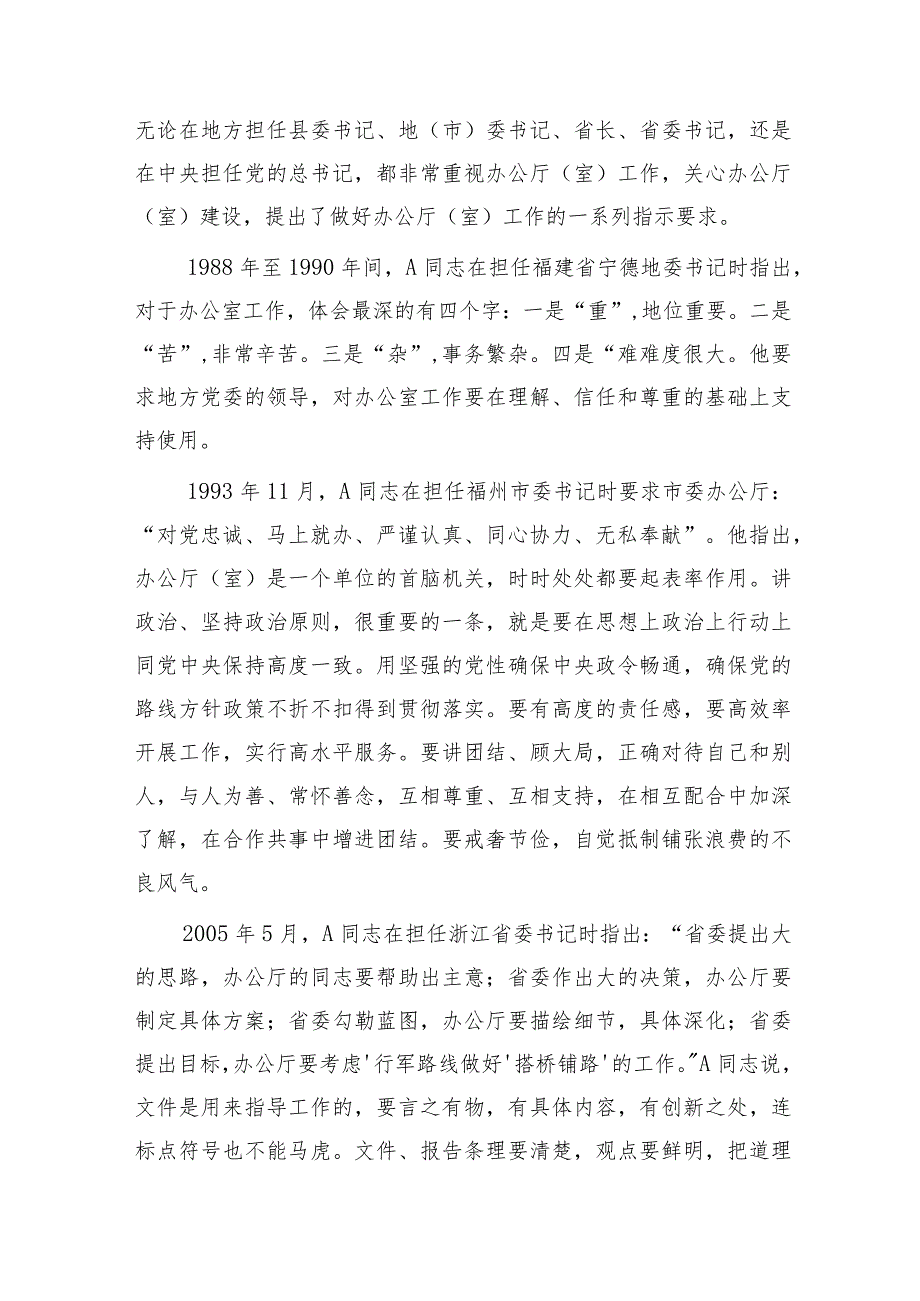 无论在地方担任县委书记、地（市）委书记、省长、省委书记，还是
在中央担任党的总书记，都非常重视办公厅（室）工作，关心办公厅
（室）建设，提出了做好办公厅（室）工作的一系列指示要求。
1988 年至 1990 年间，A 同志在担任福建省宁德地委书记时指出，
对于办公室工作，体会最深的有四个字：一是“重”,地位重要。二是
“苦”,非常辛苦。三是“杂”,事务繁杂。四是“难难度很大。他要
求地方党委的领导，对办公室工作要在理解、信任和尊重的基础上支
持使用。
1993 年 11 月，A 同志在担任福州市委书记时要求市委办公厅：
“对党忠诚、马上就办、严谨认真、同心协力、无私奉献”。他指出，
办公厅（室）是一个单位的首脑机关，时时处处都要起表率作用。讲
政治、坚持政治原则，很重要的一条，就是要在思想上政治上行动上
同党中央保持高度一致。用坚强的党性确保中央政令畅通，确保党的
路线方针政策不折不扣得到贯彻落实。要有高度的责任感，要高效率
开展工作，实行高水平服务。要讲团结、顾大局，正确对待自己和别
人，与人为善、常怀善念，互相尊重、互相支持，在相互配合中加深
了解，在合作共事中增进团结。要戒奢节俭，自觉抵制铺张浪费的不
良风气。
2005 年 5 月，A 同志在担任浙江省委书记时指出：“省委提出大
的思路，办公厅的同志要帮助出主意；省委作出大的决策，办公厅要
制定具体方案；省委勾勒蓝图，办公厅要描绘细节，具体深化；省委
提出目标,办公厅要考虑'行军路线做好'搭桥铺路'的工作。"A 同志说，
文件是用来指导工作的，要言之有物，有具体内容，有创新之处，连
标点符号也不能马虎。文件、报告条理要清楚，观点要鲜明，把道理